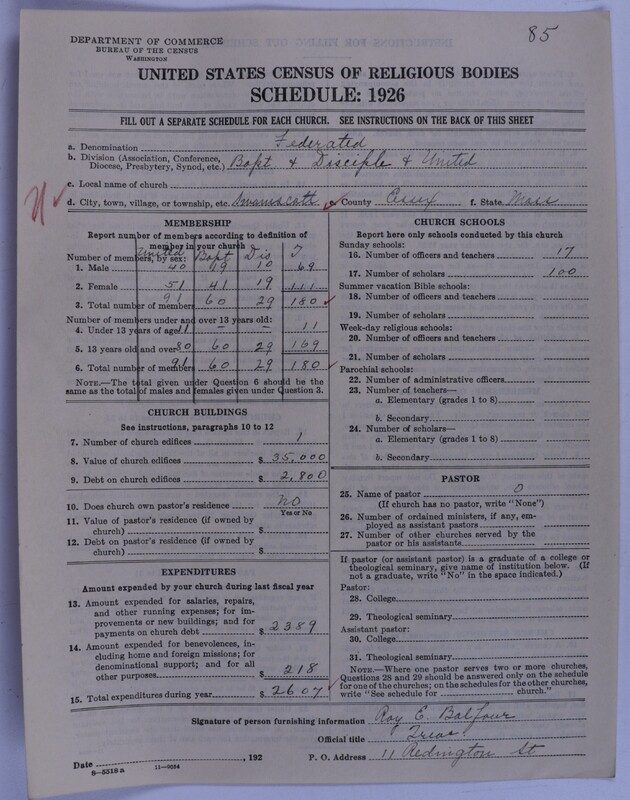 85
DEPARTMENT OF COMMERCE
BUREAU OF THE CENSUS
WASHINGTON
UNITED STATES CENSUS OF RELIGIOUS BODIES
SCHEDULE: 1926
FILL OUT A SEPARATE SCHEDULE FOR EACH CHURCH. SEE INSTRUCTIONS ON THE BACK OF THIS SHEET
a. Denomination Federated
b. Division (Association, Conference, Diocese, Presbytery, Synod, etc.) Bapt & Disciple & United
c. Local name of church
d. City, town, village, or township, etc. Swampscott e. County Essex f. State Mass
MEMBERSHIP
Report number of members according to definition of
member in your church
United Bapt Dis T
Number of members, by sex:
1. Male 40 19 10 69
2. Female 51 41 19 111
3. Total number of members 91 60 29 180
Number of members under and over 13 years old:
4. Under 13 years of age 11 – – 11
5. 13 years old and over 80 60 29 169
6. Total number of members 91 60 29 180
NOTE.—The total given under Question 6 should be
same as the total of males and females given under Question 3.
CHURCH BUILDINGS
See instructions, paragraphs 10 to 12
7. Number of church edifices 1
8. Value of church edifices $ 35,000
9. Debt on church edifices $ 2,800
10. Does church own pastor's residence No
Yes or No
11. Value of pastor's residence (if owned by
church) $
12. Debt on pastor's residence (if owned by
church) $
EXPENDITURES
Amount expended by your church during last fiscal year
13. Amount expended for salaries, repairs,
and other running expenses; for im-
provements or new buildings; and for
payments on church debt $ 2389
14. Amount expended for benevolences, in-
cluding home and foreign missions; for
denominational support; and for all
other purposes $ 218
15. Total expenditures during year $ 2607
CHURCH SCHOOLS
Report here only schools conducted by this church
Sunday schools:
16. Number of officers and teachers 17
17. Number of scholars 100
Summer vacation Bible schools:
18. Number of officers and teachers
19. Number of scholars
Week-day religious schools:
20. Number of officers and teachers
21. Number of scholars
Parochial schools:
22. Number of administrative officers
23. Number of teachers—
a. Elementary (grades 1 to 8)
b. Secondary
24. Number of scholars—
a. Elementary (grades 1 to 8)
b. Secondary
PASTOR
25. Name of pastor 0
(If church has no pastor, write "None")
26. Number of ordained ministers, if any, em-
ployed as assistant pastors
27. Number of other churches served by the
pastor or his assistants
If pastor (or assistant pastor) is a graduate of a college or
theological seminary, give name of institution below. (If
not a graduate, write "No" in the space indicated.)
Pastor:
28. College
29. Theological seminary
Assistant pastor:
30. College
31. Theological seminary
NOTE.—Where one pastor serves two or more churches,
Questions 28 and 29 should be answered only on the schedule
for one of the churches; on the schedules for the other churches,
write "See schedule for church."
Signature of person furnishing information Roy E. Balfour
Official title Treas
Date , 192 P. O. Address 11 Redington St.
8-5518a 11-9054